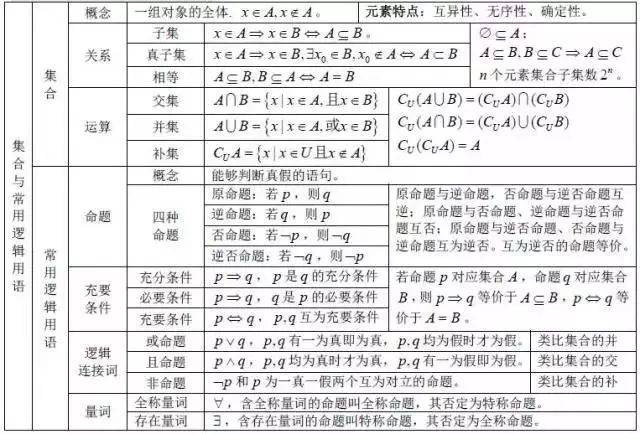 集合与常用逻辑用语
集合
概念
一组对象的全体. x∈A, x∉A。
元素特点：互异性、无序性、确定性。
关系
子集
x∈A⇒x∈B⇔A⊆B。
真子集
x∈A⇒x∈B,∃x₀∈B,x₀∉A⇔A⊂B
相等
A⊆B,B⊆A⇔A=B
∅⊆A；
A⊆B,B⊆C⇒A⊆C
n个元素集合子集数2ⁿ。
运算
交集
A∩B={x|x∈A,且x∈B}
并集
A∪B={x|x∈A,或x∈B}
补集
C_U A={x|x∈U且x∉A}
C_U(A∪B)=(C_U A)∩(C_U B)
C_U(A∩B)=(C_U A)∪(C_U B)
C_U(C_U A)=A
常用逻辑用语
命题
概念
能够判断真假的语句。
四种
命题
原命题：若p，则q
逆命题：若q，则p
否命题：若¬p，则¬q
逆否命题：若¬q，则¬p
原命题与逆命题，否命题与逆否命题互
逆；原命题与否命题、逆命题与逆否命
题互否；原命题与逆否命题、否命题与
逆命题互为逆否。互为逆否的命题等价。
充要
条件
充分条件
p⇒q，p是q的充分条件
必要条件
p⇒q，q是p的必要条件
充要条件
p⇔q，p,q互为充要条件
若命题p对应集合A，命题q对应集合
B，则p⇒q等价于A⊆B，p⇔q等
价于A=B。
逻辑
连接词
或命题
p∨q，p,q有一为真即为真，p,q均为假时才为假。
类比集合的并
且命题
p∧q，p,q均为真时才为真，p,q有一为假即为假。
类比集合的交
非命题
¬p和p为一真一假两个互为对立的命题。
类比集合的补
量词
全称量词
∀，含全称量词的命题叫全称命题，其否定为特称命题。
存在量词
∃，含存在量词的命题叫特称命题，其否定为全称命题。